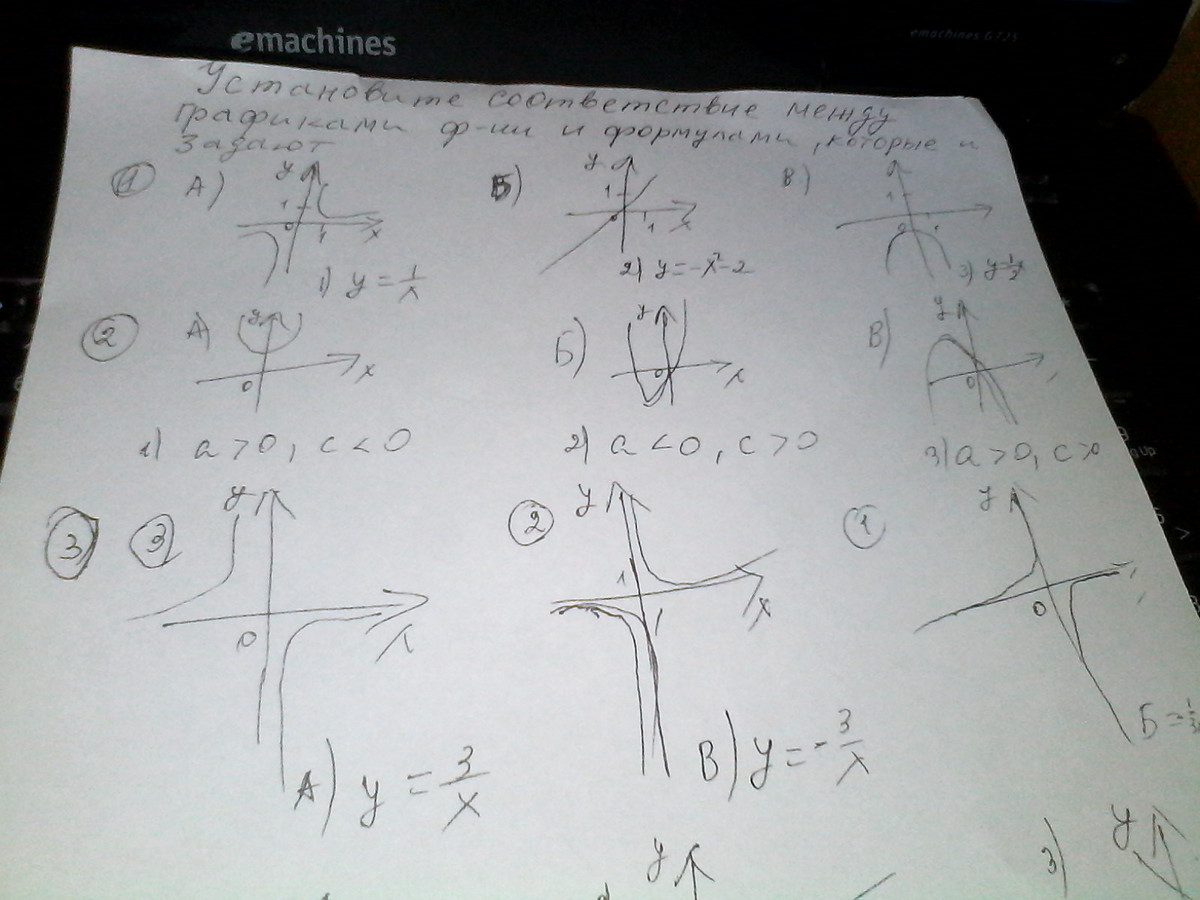 emachines
emachines G725
Установите соответствие между
графиками ф-ии и формулами, которые и
задают
1 А) y 1 0 1 x
Б) y 1 0 1 x
В) 1 0 1
1) y = 1/x
2) y = -x²-2
2 А) y 0 x
Б) y 0 x
В) y 0
1) a > 0, c < 0
2) a < 0, c > 0
3) a > 0, c >
3 3 y 0 x
2 y 1 1 x
1 y 0
А) y = 3/x
В) y = - 3/x
Б =
y
3) y